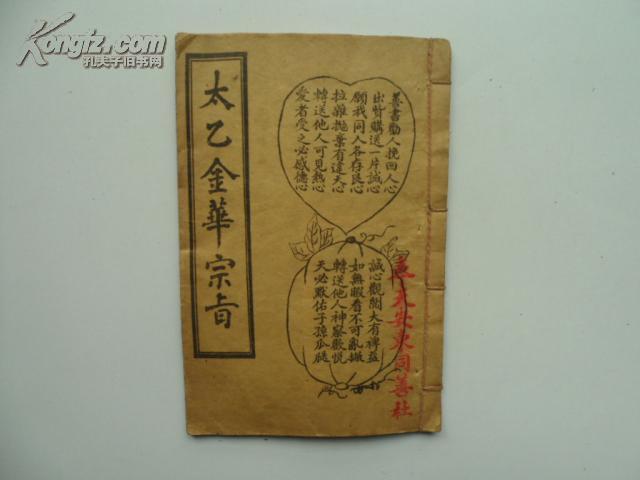 Kongfz.com
孔夫子旧书网
太乙金華宗旨
善書勸人挽回人心
出資購送一片誠心
願我同人各存良心
拉雜拋棄有違天心
轉送他人可見熱心
愛者受之必感德心
誠心觀閱大有裨益
如無暇看不可亂擲
轉送他人神察歡悅
天必默佑子孫瓜瓞
天安東同善社